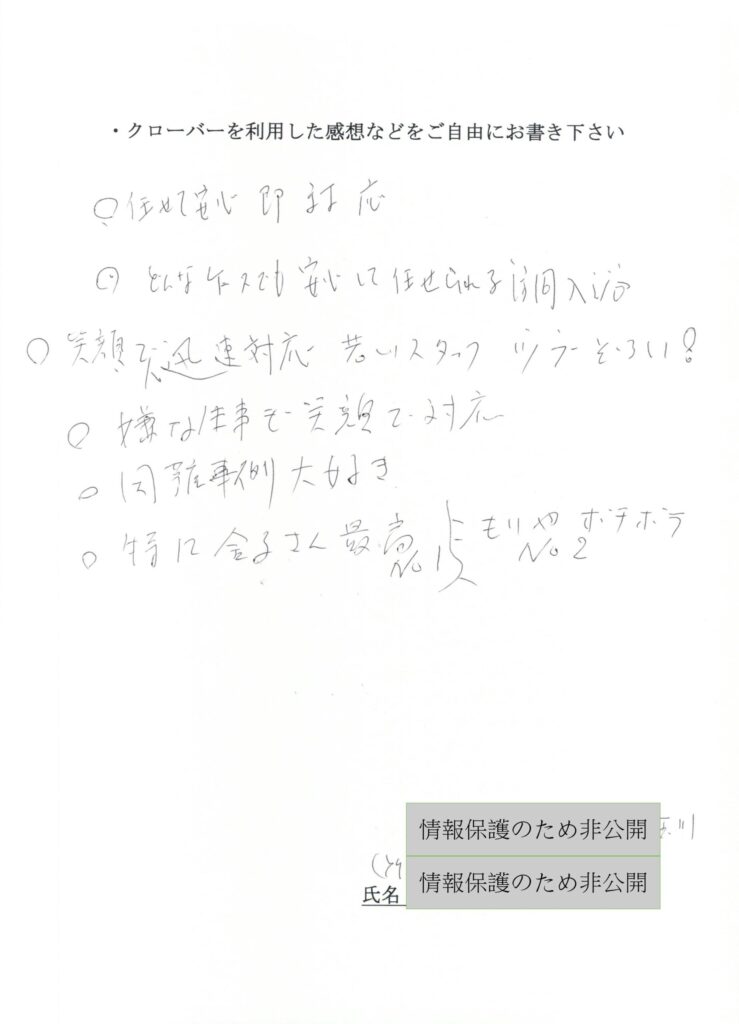 ・クローバーを利用した感想などをご自由にお書き下さい
○任せて安心 即対応
○どんなケースでも安心して任せられる訪問入浴
○笑顔で迅速対応 若いスタッフ ぞろい!
○嫌な仕事も笑顔で対応
○困難事例大好き
○特に金子さん最高 No1 もりや ボチボチ No2
情報保護のため非公開
情報保護のため非公開
氏名